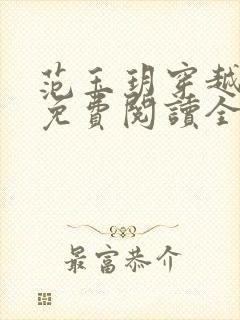 范玉玥穿越
免費閱讀全
最富恭介